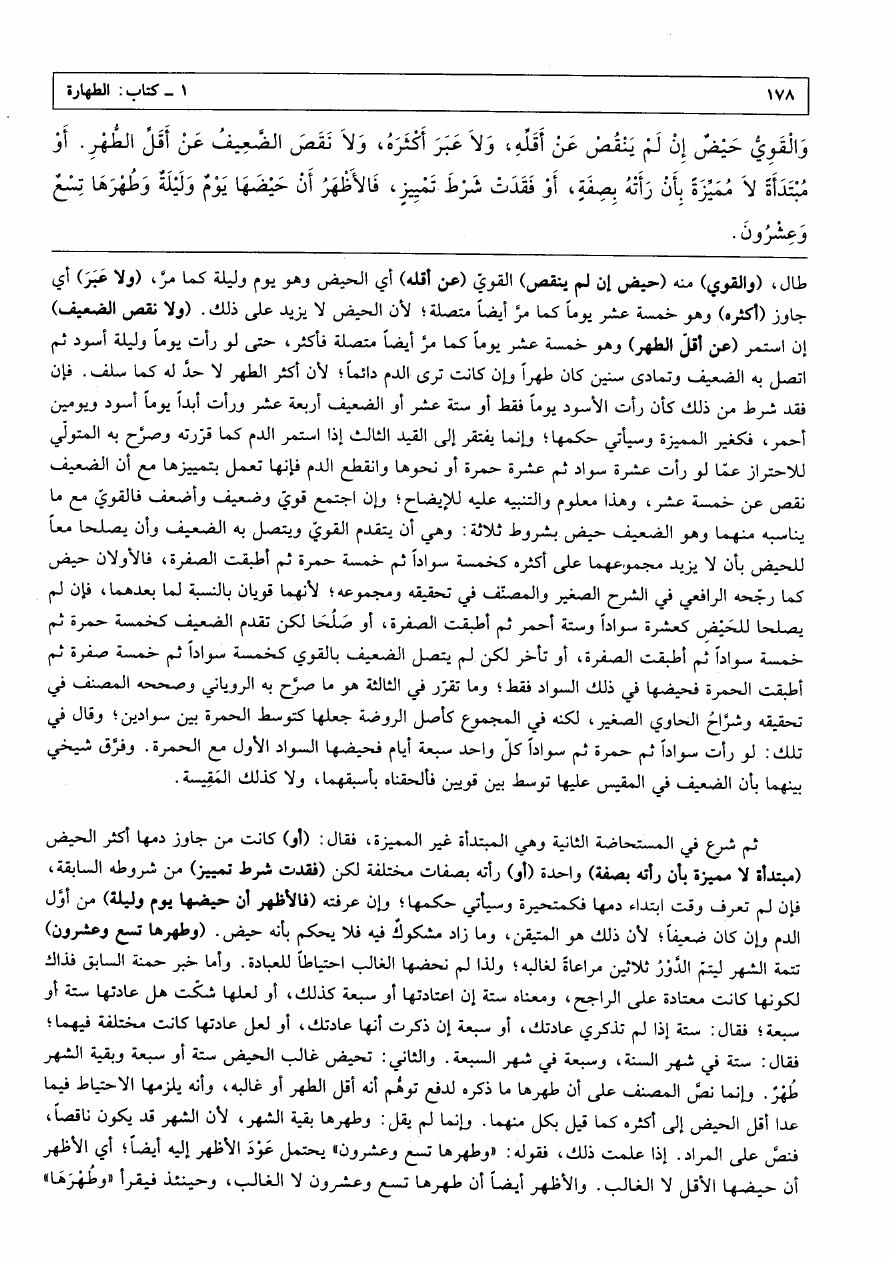 ١٧٨
١ ـ كتاب: الطهارة
وَالْقَوِيُّ حَيْضٌ إِنْ لَمْ يَنْقُصْ عَنْ أَقَلِّهِ، وَلاَ عَبَرَ أَكْثَرَهُ، وَلاَ نَقَصَ الضَّعِيفُ عَنْ أَقَلِّ الطُّهْرِ. أَوْ
مُبْتَدَأَةً لاَ مُمَيِّزَةً بِأَنْ رَأَتْهُ بِصِفَةٍ، أَوْ فَقَدَتْ شَرْطَ تَمْيِيزٍ، فَالأَظْهَرُ أَنَّ حَيْضَهَا يَوْمٌ وَلَيْلَةٌ وَطُهْرَهَا تِسْعٌ
وَعِشْرُونَ.
طال، (والقوي) منه (حيض إن لم ينقص) القويّ (عن أقله) أي الحيض وهو يوم وليلة كما مرَّ، (ولا عَبَرَ) أي
جاوز (أكثره) وهو خمسة عشر يوماً كما مرَّ أيضاً متصلة؛ لأن الحيض لا يزيد على ذلك. (ولا نقص الضعيف)
إن استمر (عن أقلّ الطهر) وهو خمسة عشر يوماً كما مرَّ أيضاً متصلة فأكثر، حتى لو رأت يوماً وليلة أسود ثم
اتصل به الضعيف وتمادى سنين كان طهراً وإن كانت ترى الدم دائماً؛ لأن أكثر الطهر لا حدَّ له كما سلف. فإن
فقد شرط من ذلك كأن رأت الأسود يوماً فقط أو ستة عشر أو الضعيف أربعة عشر ورأت أبداً يوماً أسود ويومين
أحمر، فكغير المميزة وسيأتي حكمها؛ وإنما يفتقر إلى القيد الثالث إذا استمر الدم كما قرّرته وصرَّح به المتولّي
للاحتراز عمّا لو رأت عشرة سواد ثم عشرة حمرة أو نحوها وانقطع الدم فإنها تعمل بتمييزها مع أن الضعيف
نقص عن خمسة عشر، وهذا معلوم والتنبيه عليه للإيضاح؛ وإن اجتمع قويّ وضعيف وأضعف فالقويّ مع ما
يناسبه منهما وهو الضعيف حيض بشروط ثلاثة: وهي أن يتقدم القويّ ويتصل به الضعيف وأن يصلحا معاً
للحيض بأن لا يزيد مجموعهما على أكثره كخمسة سواداً ثم خمسة حمرة ثم أطبقت الصفرة، فالأولان حيض
كما رجّحه الرافعي في الشرح الصغير والمصنّف في تحقيقه ومجموعه؛ لأنهما قويان بالنسبة لما بعدهما، فإن لم
يصلحا للحَيْضِ كعشرة سواداً وستة أحمر ثم أطبقت الصفرة، أو صَلُحَا لكن تقدم الضعيف كخمسة حمرة ثم
خمسة سواداً ثم أطبقت الصفرة، أو تأخر لكن لم يتصل الضعيف بالقوي كخمسة سواداً ثم خمسة صفرة ثم
أطبقت الحمرة فحيضها في ذلك السواد فقط؛ وما تقرّر في الثالثة هو ما صرَّح به الروياني وصححه المصنف في
تحقيقه وشرَّاحُ الحاوي الصغير، لكنه في المجموع كأصل الروضة جعلها كتوسط الحمرة بين سوادين؛ وقال في
تلك: لو رأت سواداً ثم حمرة ثم سواداً كلّ واحد سبعة أيام فحيضها السواد الأول مع الحمرة. وفرَّق شيخي
بينهما بأن الضعيف في المقيس عليها توسط بين قويين فألحقناه بأسبقهما، ولا كذلك المَقِيسة.
ثم شرع في المستحاضة الثانية وهي المبتدأة غير المميزة، فقال: (أو) كانت من جاوز دمها أكثر الحيض
(مبتدأة لا مميزة بأن رأته بصفة) واحدة (أو) رأته بصفات مختلفة لكن (فقدت شرط تمييز) من شروطه السابقة،
فإن لم تعرف وقت ابتداء دمها فكمتحيرة وسيأتي حكمها؛ وإن عرفته (فالأظهر أن حيضها يوم وليلة) من أوَّل
الدم وإن كان ضعيفاً؛ لأن ذلك هو المتيقن، وما زاد مشكوكٌ فيه فلا يحكم بأنه حيض. (وطهرها تسع وعشرون)
تتمة الشهر ليتمّ الدَّوْرُ ثلاثين مراعاةً لغالبه؛ ولذا لم نحضها الغالب احتياطاً للعبادة. وأما خبر حمنة السابق فذاك
لكونها كانت معتادة على الراجح، ومعناه ستة إن اعتادتها أو سبعة كذلك، أو لعلها شكّت هل عادتها ستة أو
سبعة؛ فقال: ستة إذا لم تذكري عادتك، أو سبعة إن ذكرت أنها عادتك، أو لعل عادتها كانت مختلفة فيهما؛
فقال: ستة في شهر الستة، وسبعة في شهر السبعة. والثاني: تحيض غالب الحيض ستة أو سبعة وبقية الشهر
طُهْرٌ. وإنما نصَّ المصنف على أن طهرها ما ذكره لدفع توهُّم أنه أقل الطهر أو غالبه، وأنه يلزمها الاحتياط فيما
عدا أقل الحيض إلى أكثره كما قيل بكل منهما. وإنما لم يقل: وطهرها بقية الشهر، لأن الشهر قد يكون ناقصاً،
فنصَّ على المراد. إذا علمت ذلك، فقوله: «وطهرها تسع وعشرون» يحتمل عَوْدَ الأظهر إليه أيضاً؛ أي الأظهر
أن حيضها الأقل لا الغالب. والأظهر أيضاً أن طهرها تسع وعشرون لا الغالب، وحينئذ فيقرأ «وطُهْرَهَا»